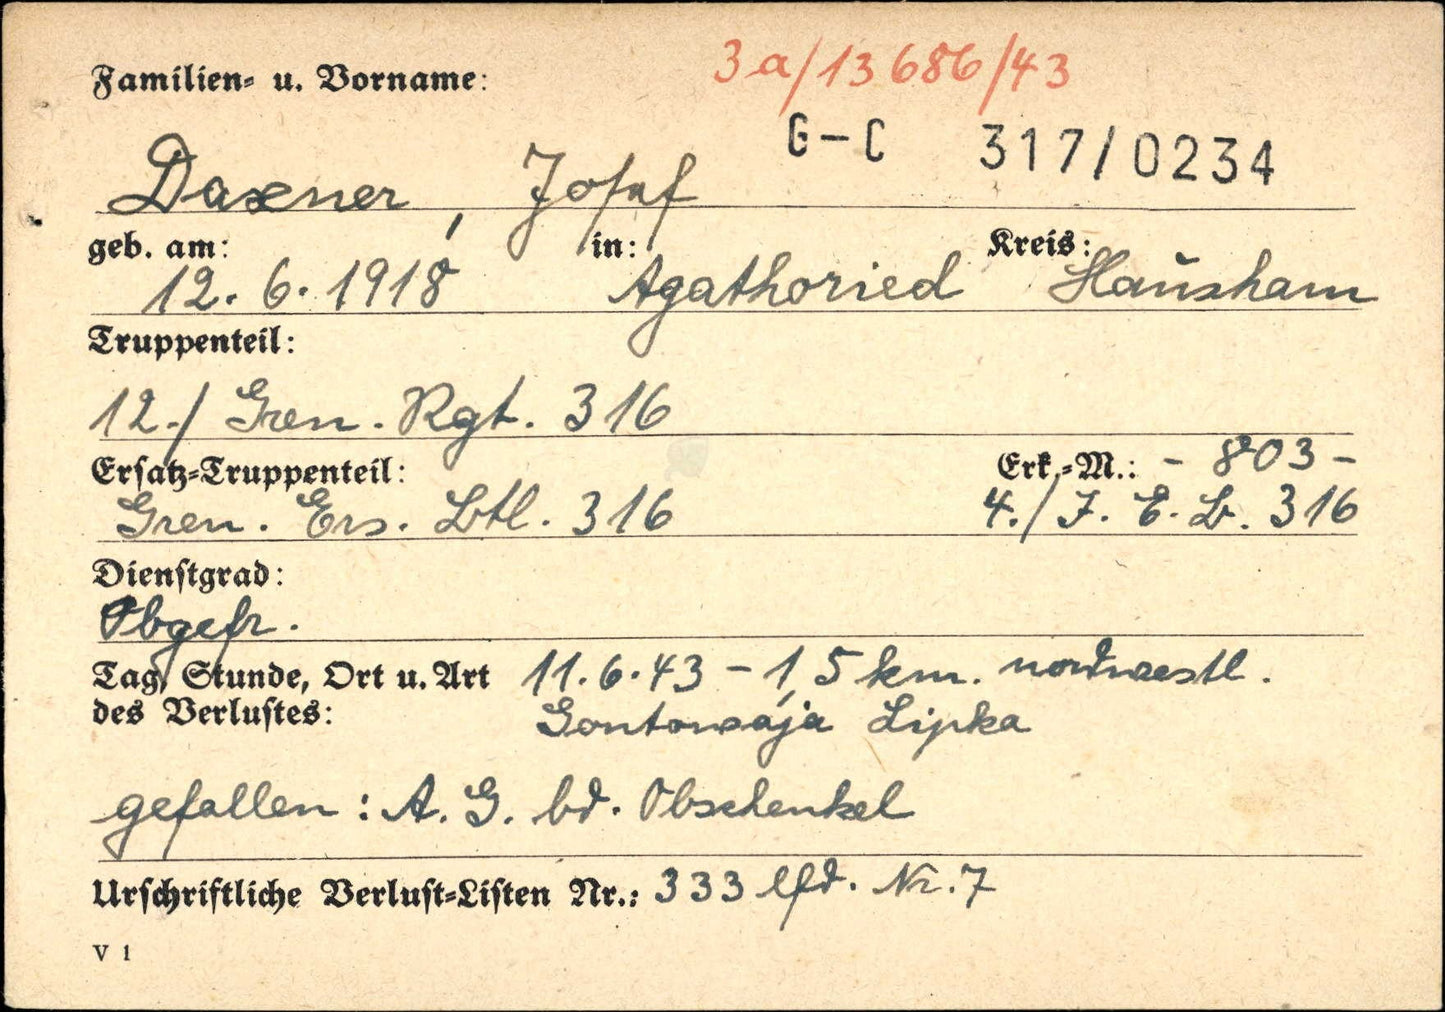 3a/13686/43
Familien- u. Vorname:
G-C 317/0234
Daxner, Josef
geb. am: in: Kreis:
12.6.1918 Agathoried Hausham
Truppenteil:
12./Gren. Rgt. 316
Ersatz-Truppenteil: Erk.-M.: - 803 -
Gren. Ers. Btl. 316 4./J. E. B. 316
Dienstgrad:
Obgefr.
Tag, Stunde, Ort u. Art 11.6.43 - 1,5 km. nordwestl.
des Verlustes: Gontowaja Lipka
gefallen: A. G. bd. Obschenkel
Urschriftliche Verlust-Listen Nr.: 333 lfd. Nr. 7
V 1